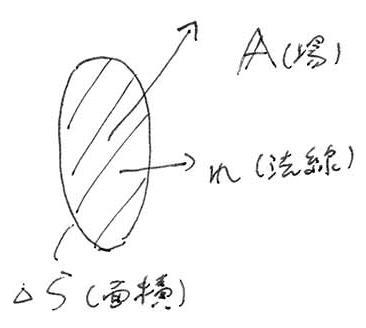 A(場)
n(法線)
ΔS(面積)